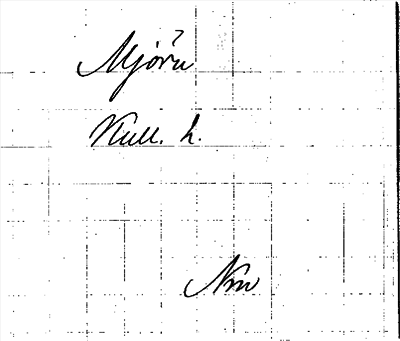 Mjörn
Kull. h.
Nm